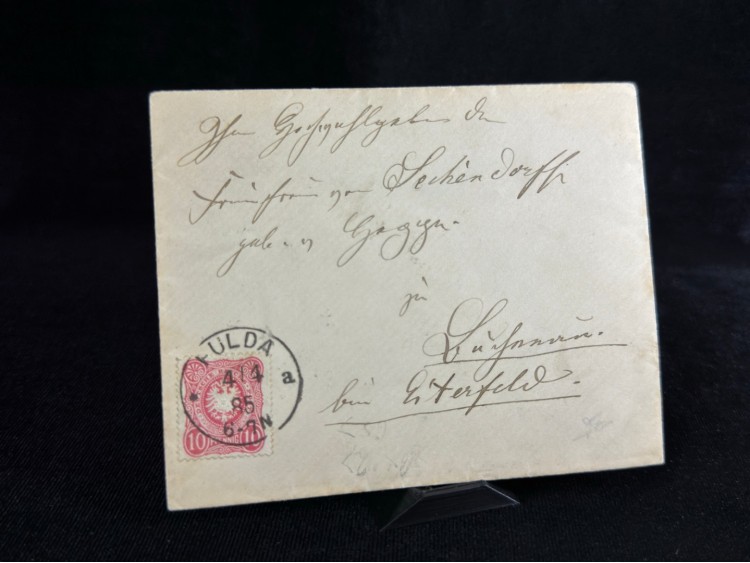 Ihrer Hochwohlgeboren der
Freifrau von Seckendorff
geb. v
zu
Buchenau.
bei Eiterfeld.
FULDA
4 4
a
85
6-7N
10